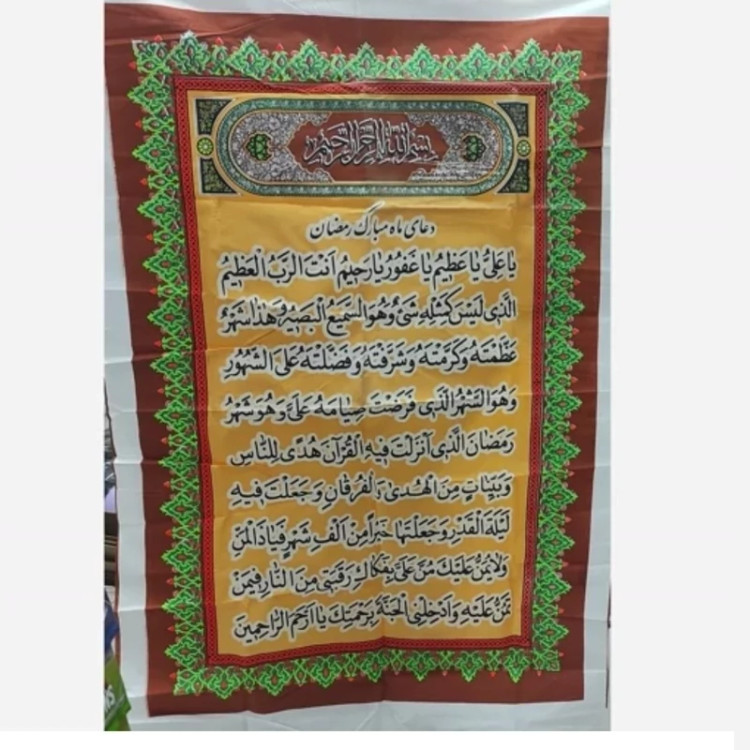 بسم الله الرحمن الرحیم
دعای ماه مبارک رمضان
یا عَلِیُّ یا عَظیمُ یا غَفُورُ یا رَحیمُ اَنْتَ الرَّبُّ الْعَظیمُ
الَّذی لَیْسَ کَمِثْلِهِ شَیْءٌ وَهُوَ السَّمیعُ الْبَصیرُ وَهٰذا شَهْرٌ
عَظَّمْتَهُ وَکَرَّمْتَهُ وَشَرَّفْتَهُ وَفَضَّلْتَهُ عَلَی الشُّهُورِ
وَهُوَ الشَّهْرُ الَّذی فَرَضْتَ صِیامَهُ عَلَیَّ وَهُوَ شَهْرُ
رَمَضانَ الَّذی اَنْزَلْتَ فیهِ الْقُرْآنَ هُدًی لِلنّاسِ
وَبَیِّناتٍ مِنَ الْهُدیٰ وَالْفُرْقانِ وَجَعَلْتَ فیهِ
لَیْلَةَ الْقَدْرِ وَجَعَلْتَها خَیْراً مِنْ اَلْفِ شَهْرٍ فَیا ذَا الْمَنِّ
وَلا یُمَنُّ عَلَیْکَ مُنَّ عَلَیَّ بِفَکاکِ رَقَبَتی مِنَ النّارِ فیمَنْ
تَمُنُّ عَلَیْهِ وَاَدْخِلْنِی الْجَنَّةَ بِرَحْمَتِکَ یا اَرْحَمَ الرّاحِمینَ